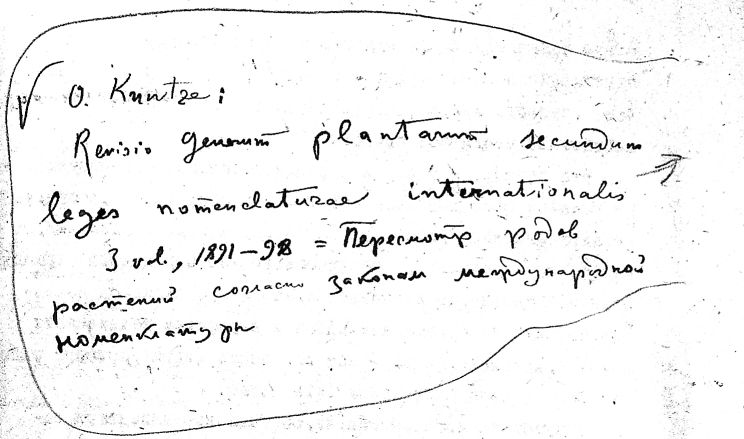 O. Kuntze:
Revisio generum plantarum secundum
leges nomenclaturae internationalis
3 vol., 1891-98 = Пересмотр родов
растений согласно законам международной
номенклатуры